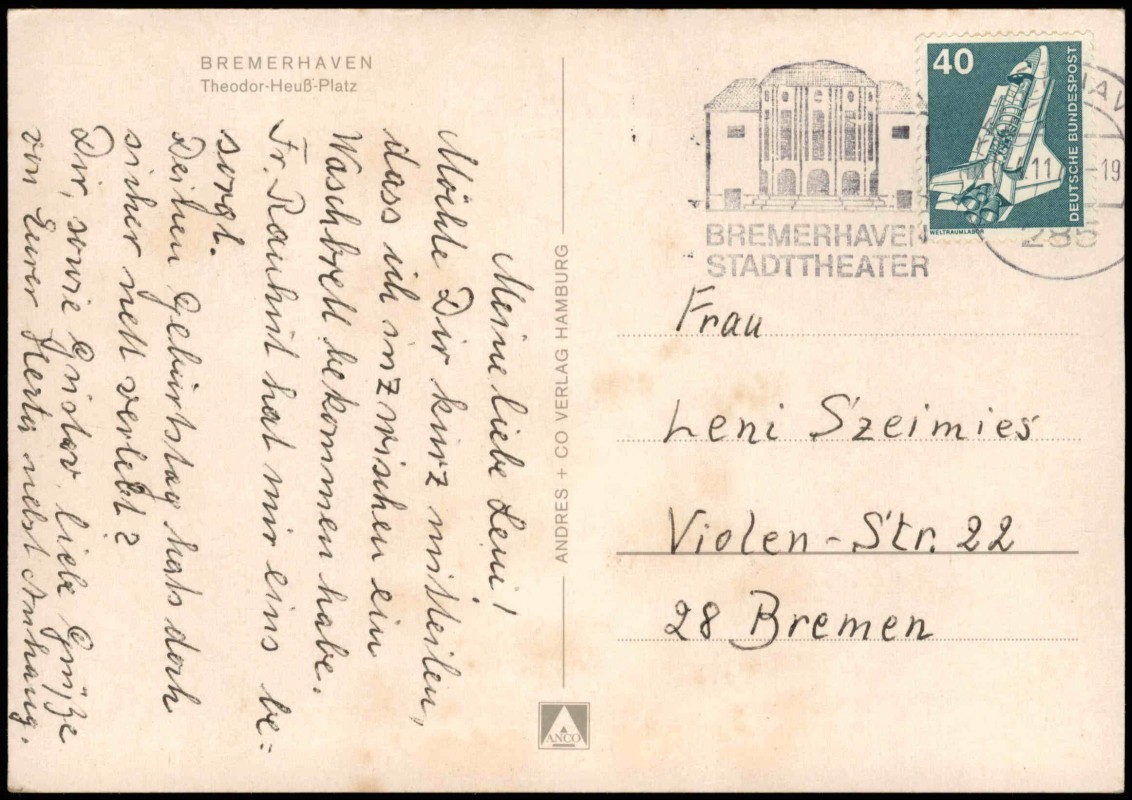 BREMERHAVEN
Theodor-Heuß-Platz
Meine liebe Leni!
Möchte Dir kurz mitteilen,
dass ich inzwischen ein
Waschbrett bekommen habe.
Fr. Rauhut hat mir eins be=
sorgt.
Deinen Geburtstag hats doch
sicher nett verlebt?
Dir, sowie Gustav liebe Grüße
von Eurer Herta nebst Anhang.
ANDRES + CO VERLAG HAMBURG
ANCO
BREMERHAVEN
STADTTHEATER
40
DEUTSCHE BUNDESPOST
WELTRAUMLABOR
HAV
.11
-19
285
Frau
Leni Szeimies
Violen-Str. 22
28 Bremen